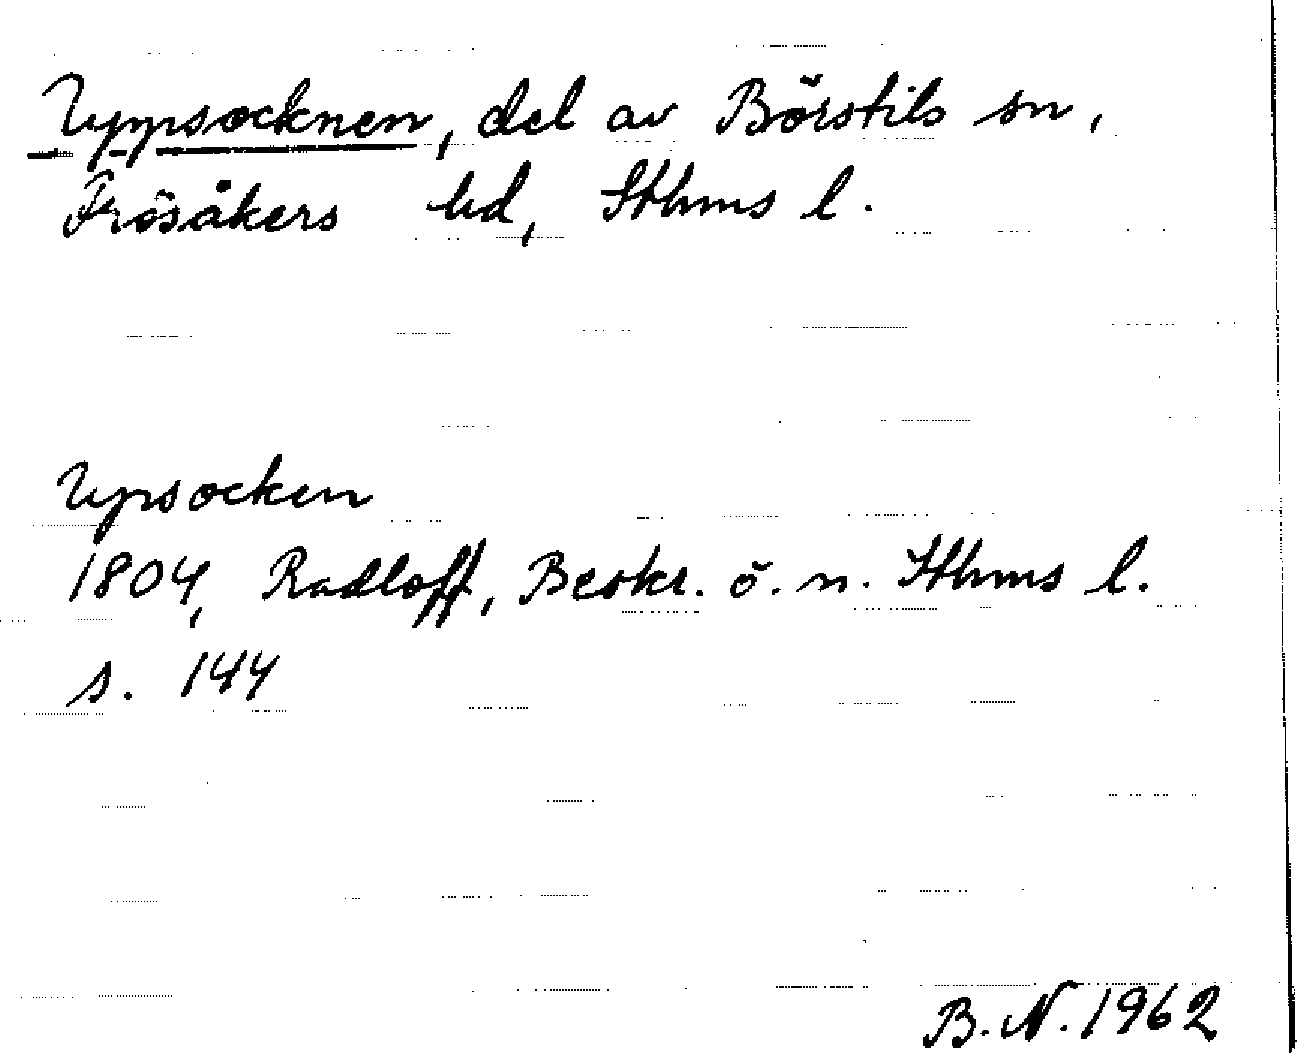 Uppsocknen, del av Börstils sn,
Frösåkers hd, Sthms l.
Upsocken
1804, Radloff, Beskr. ö. n. Sthms l.
s. 144
B. N. 1962